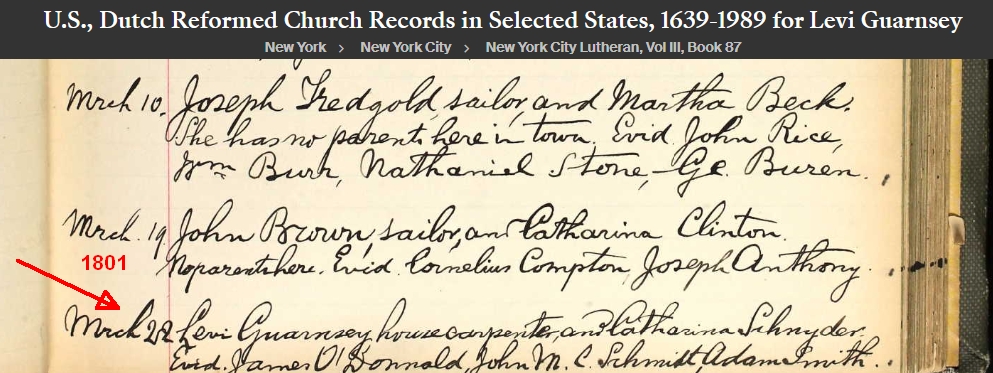 U.S., Dutch Reformed Church Records in Selected States, 1639-1989 for Levi Guarnsey
New York > New York City > New York City Lutheran, Vol III, Book 87
Mrch 10. Joseph Tredgold, sailor, and Martha Beck.
She has no parents here in town, Evid. John Rice,
Wm Burr, Nathaniel Stone, Ge. Buren.
Mrch. 19 John Brown, sailor, and Catharina Clinton.
No parents here. Evid. Cornelius Compton, Joseph Anthony.
1801
Mrch 22 Levi Guarnsey, house carpenter, and Catharina Schnyder.
Evid. James O'Donnald, John M. C. Schmidt, Adam Smith.